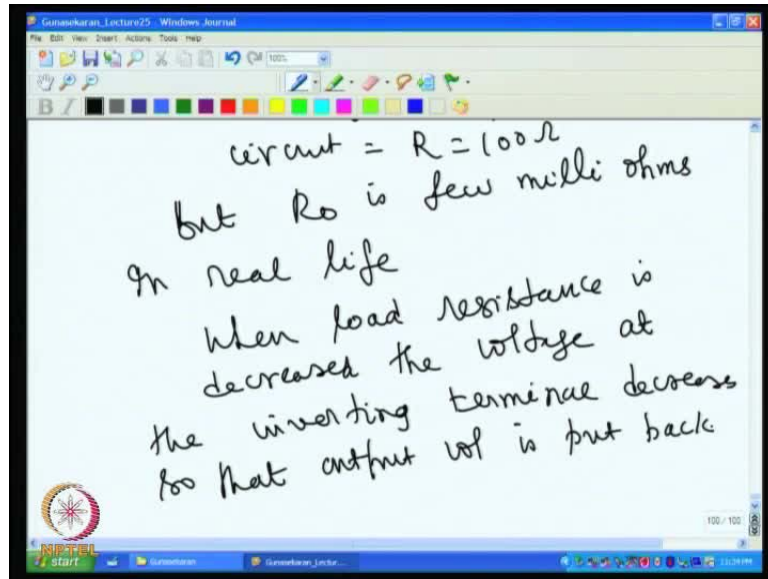 Gunasekaran_Lecture25 - Windows Journal
File Edit View Insert Actions Tools Help
100%
B I
circuit = R = 100Ω
but Ro is few milli ohms
In real life
when load resistance is
decreased the voltage at
the inverting terminal decreases
so that output vol is put back
100 / 100
NPTEL
start
Gunasekaran
Gunasekaran_Lectur...